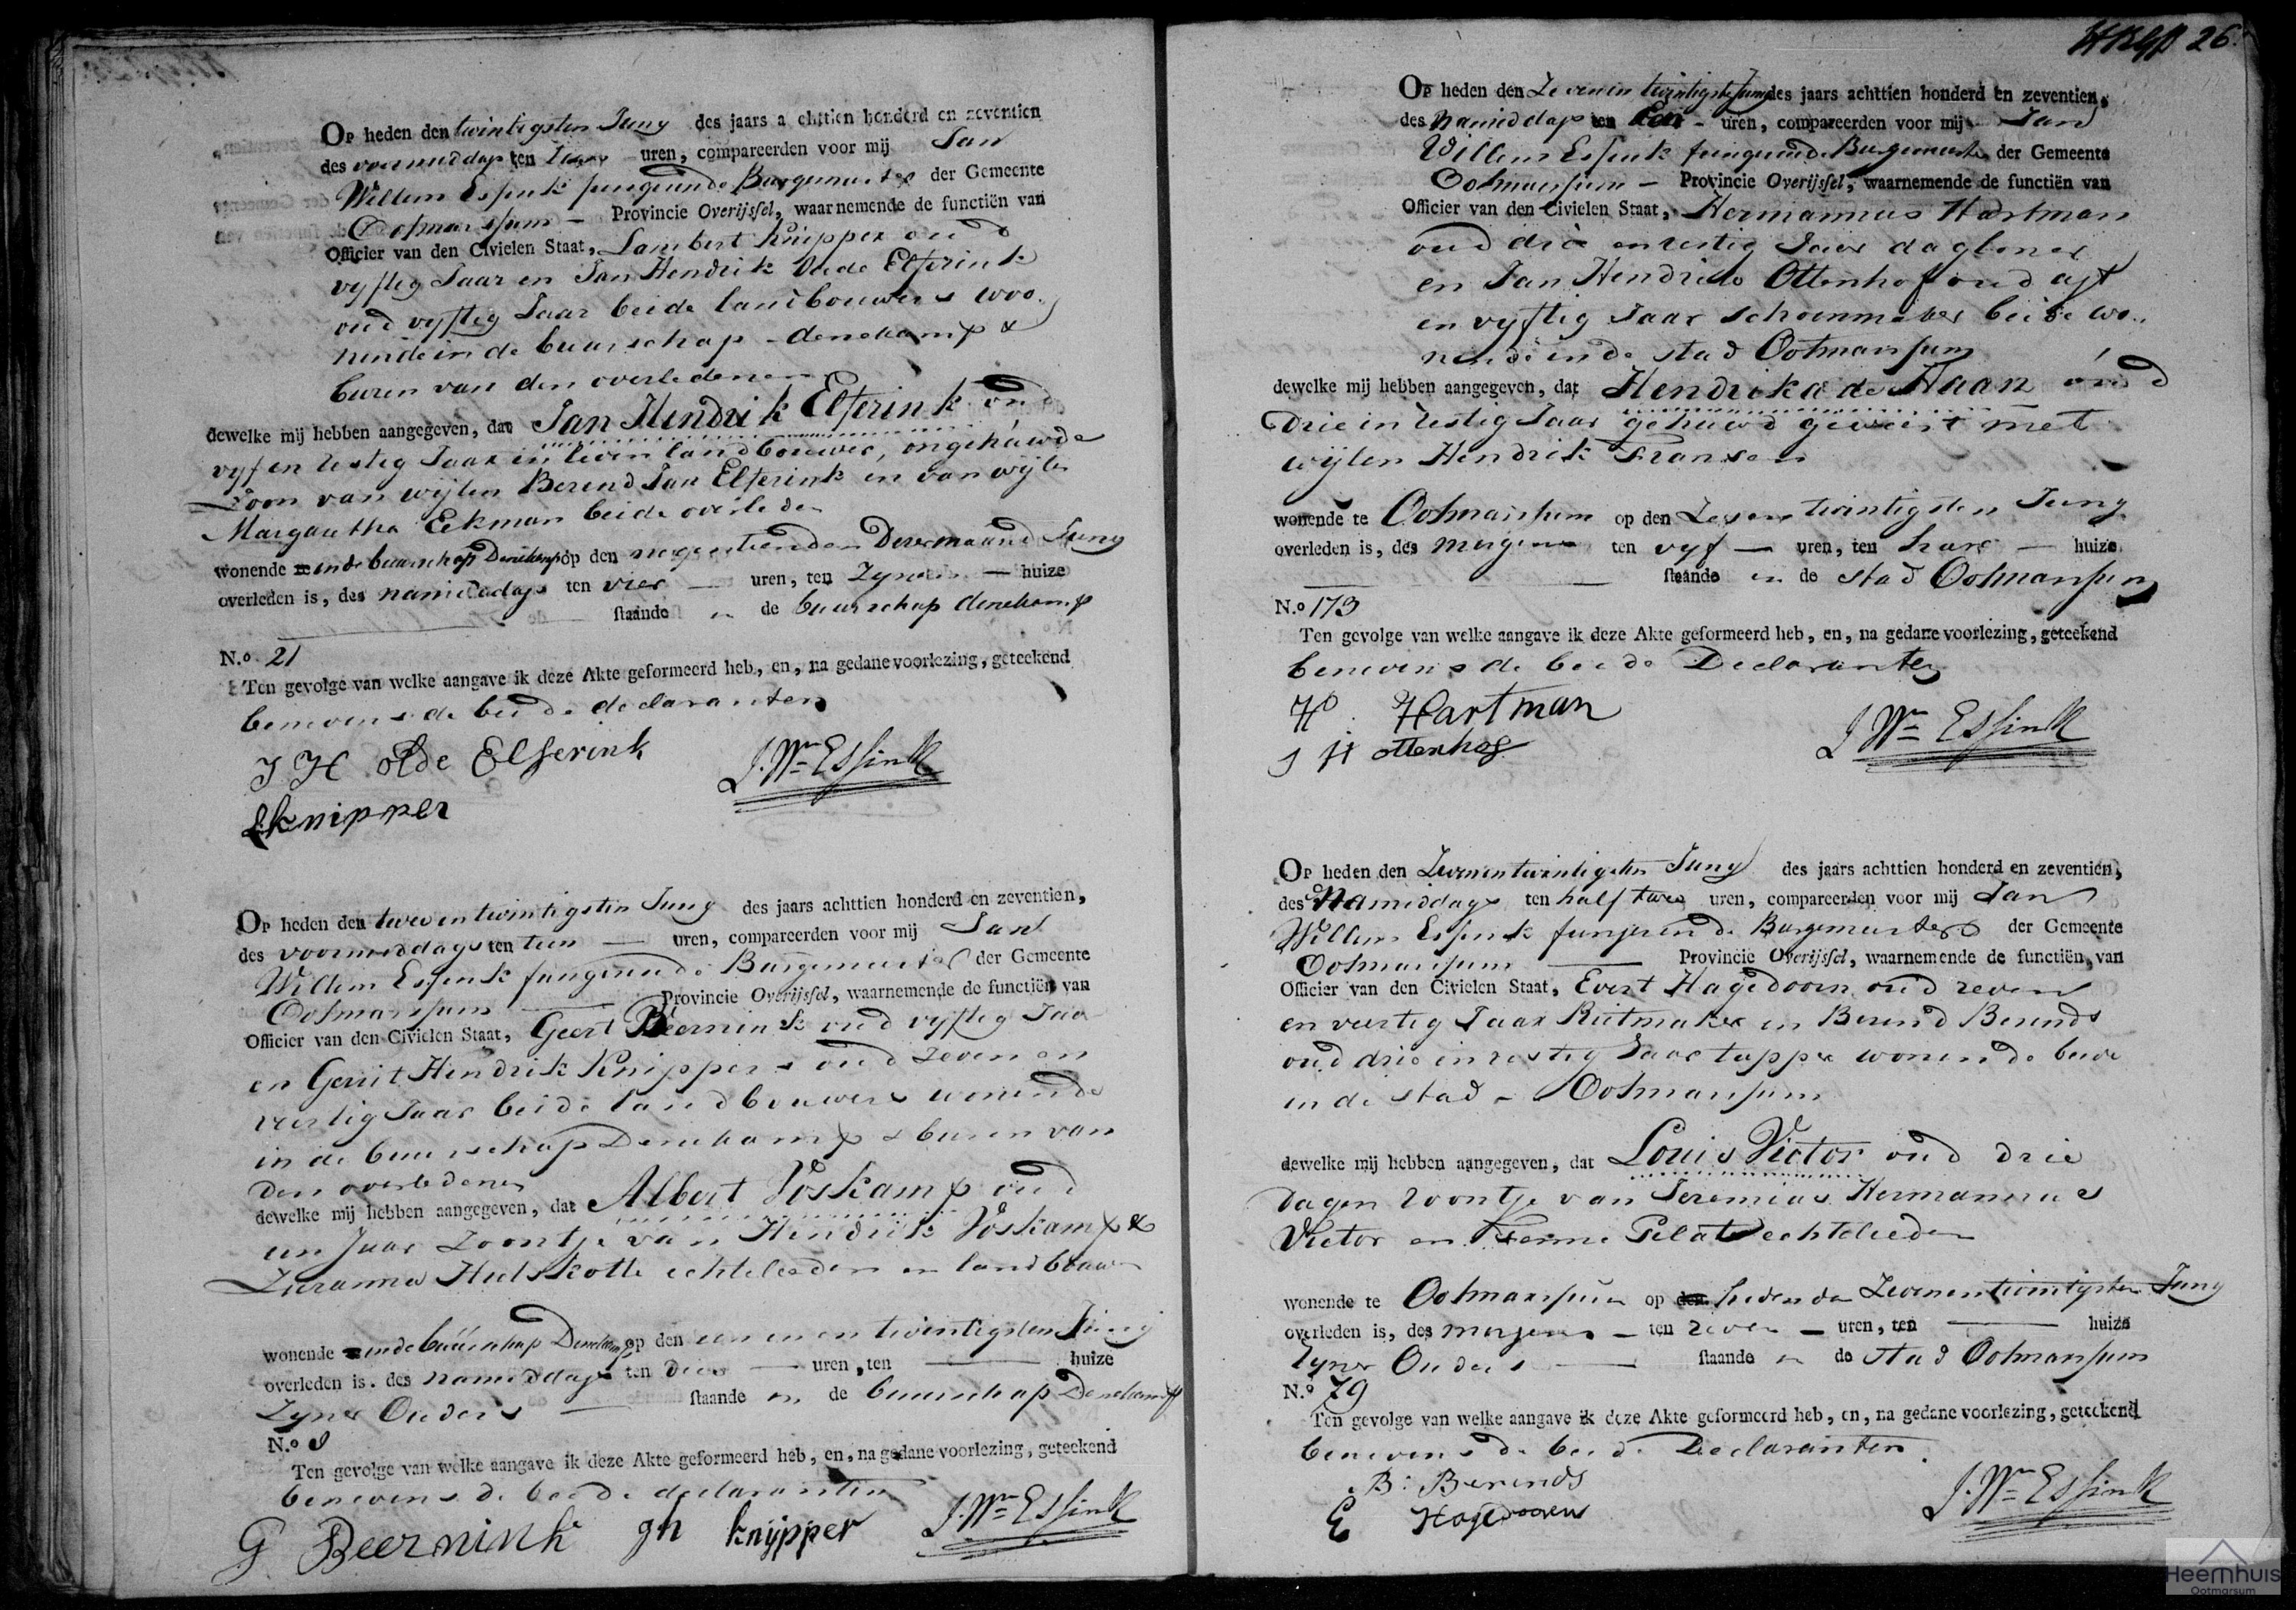 Op heden den twintigsten Juny des jaars a chttien honderd en zeventien
des voormiddags ten uren, compareerden voor mij Jan
Willem Essink fungerende Burgemeester der Gemeente
Ootmarssum – Provincie Overijssel, waarnemende de functiën van
Officier van den Civielen Staat, Lambert Knipper oud
vyftig Jaar en Jan Hendrik Oude Elferink
oud vyftig Jaar beide landbouwers woo-
nende in de buurschap Denekamp &
buren van den overledenen
dewelke mij hebben aangegeven, dat Jan Hendrik Elferink oud
vyf en sestig Jaar in leven landbouwer, ongehuwde
Zoon van wijlen Berend Jan Elferink en van wijlen
Margaretha Eekman beide overleden
wonende in de buurschap Denekamp op den negentienden Dezer maand Juny
overleden is, des namiddags ten vier — uren, ten Zynen — huize
staande in de buurschap Denekamp
N.o 21
Ten gevolge van welke aangave ik deze Akte geformeerd heb, en, na gedane voorlezing, geteekend
benevens de beide declaranten
J H olde Elferink J. Wm Essink
L knipper
Op heden den twee en twintigsten Juny des jaars achttien honderd en zeventien,
des voormiddags ten tien — uren, compareerden voor mij Jan
Willem Essink fungerende Burgemeester der Gemeente
Ootmarssum — Provincie Overijssel, waarnemende de functiën van
Officier van den Civielen Staat, Geert Beernink oud vyftig Jaar
en Gerrit Hendrik Knippers oud zeven en
veertig Jaar beide landbouwers wonende
in de buurschap Denekamp & buren van
den overledenen
dewelke mij hebben aangegeven, dat Albert Voskamp oud
een Jaar Zoontje van Hendrik Voskamp &
Zusanna Hulskotte echtelieden en landbouwer
wonende in de buurschap Denekamp op den een en en twintigsten Juny
overleden is, des namiddags ten drie — uren, ten — huize
Zyner Ouders — staande in de buurschap Denekamp
N.o 8
Ten gevolge van welke aangave ik deze Akte geformeerd heb, en, na gedane voorlezing, geteekend
benevens de beide declaranten
G Beernink gh knijpper J. Wm Essink
26.
Op heden den Zeven en twintigste Juny des jaars achttien honderd en zeventien,
des Namiddags ten Een – uren, compareerden voor mij Jan
Willem Essink fungeerende Burgemeester der Gemeente
Ootmarssum – Provincie Overijssel, waarnemende de functiën van
Officier van den Civielen Staat, Hermannus Hartman
oud drie en sestig Jaar dagloner
en Jan Hendrik Ottenhof oud agt
en vyftig Jaar schoenmaker beide wo-
nende in de stad Ootmarssum
dewelke mij hebben aangegeven, dat Hendrika de Haan oud
Drie en sestig Jaar gehuwd geweest met
wijlen Hendrik Fransen
wonende te Ootmarssum op den Zes en twintigsten Juny
overleden is, des morgens ten vyf — uren, ten hare — huize
— staande in de stad Ootmarssum
N.o 173
Ten gevolge van welke aangave ik deze Akte geformeerd heb, en, na gedane voorlezing, geteekend
benevens de beide Declaranten
H. Hartman
J H ottenhof J Wm Essink
Op heden den Zevenentwintigsten Juny des jaars achttien honderd en zeventien,
des Namiddags ten half twee uren, compareerden voor mij Jan
Willem Essink fungerende Burgemeester der Gemeente
Ootmarssum — Provincie Overijssel, waarnemende de functiën van
Officier van den Civielen Staat, Evert Hagedoorn oud zeven
en veertig Jaar Rietmaker en Berend Berends
oud drie en sestig Jaar tapper wonende beide
in de stad – Ootmarssum
dewelke mij hebben aangegeven, dat Louis Victor oud drie
dagen zoontje van Jeremias Hermannus
Victor en Fenne Pelat echtelieden
wonende te Ootmarssum op den heden den Zevenentwintigsten Juny
overleden is, des morgens – ten zeven – uren, ten — huize
Zyner Ouders — staande in de stad Ootmarssum
N.o 79
Ten gevolge van welke aangave ik deze Akte geformeerd heb, en, na gedane voorlezing, geteekend
benevens de beide Declaranten
B: Berends
E Hagedooren J. Wm Essink
Heemhuis
Ootmarsum